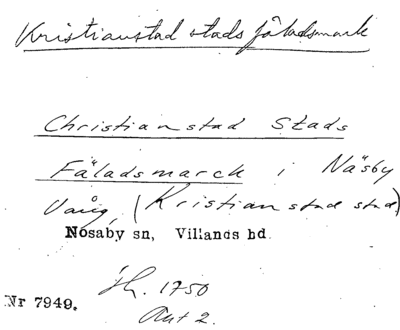 Kristianstad stads fäladsmark
Christianstad Stads
Fäladsmarck i Näsby
Vång, (Kristianstad stad)
Nosaby sn, Villands hd.
1750
Nr 7949.
Akt 2.